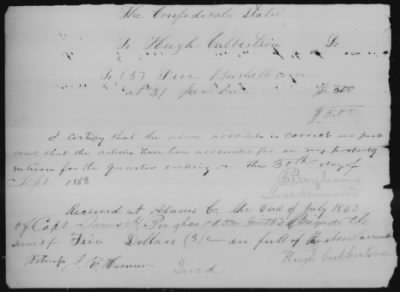 The Confederate States
To Hugh Culbertson Dr
To (5) Five Bushels corn
at $1 per bu $ 500
$ 5.00
I certify that the above account is correct and just
and that the articles have been accounted for on my property
return for the Quarter ending on the 30th day of
Sept 1863
Received at Adams Co. the 2nd of July 1863
of Capt. James
sum of Five Dollars in full of the above account
Witness Hugh Culbertson